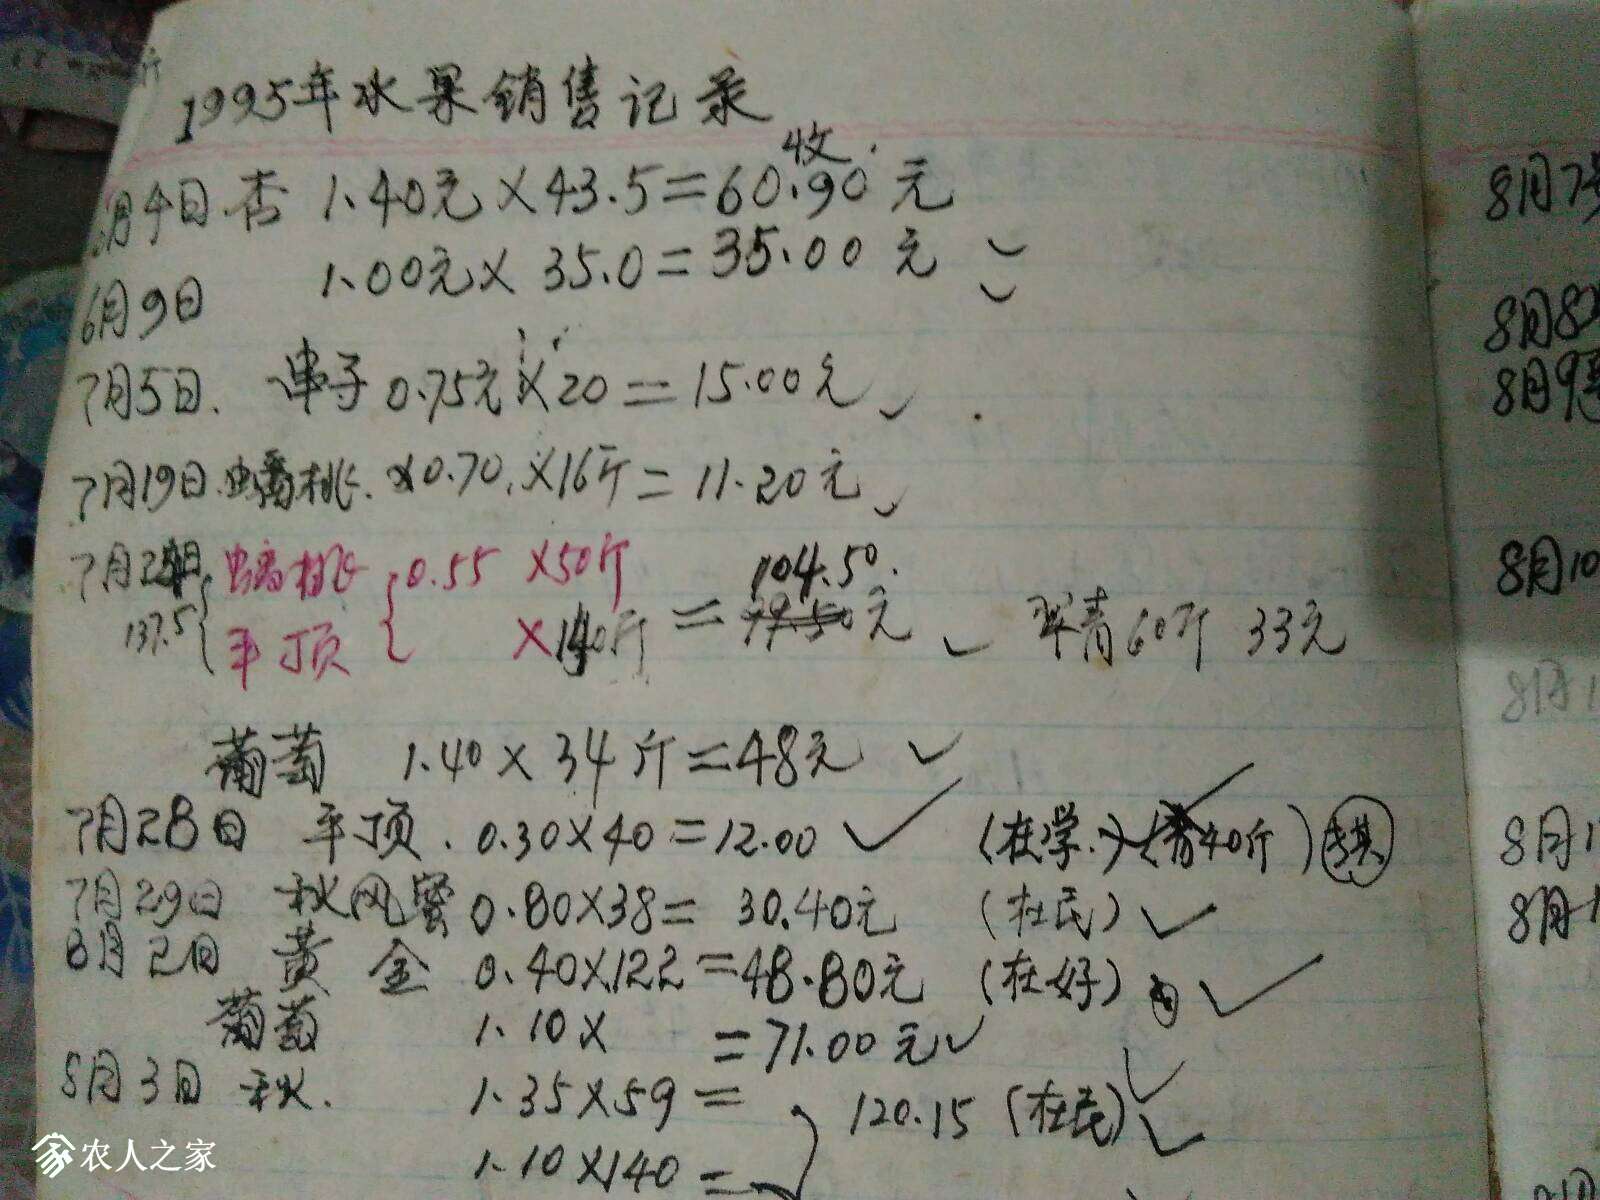 1995年水果销售记录
收.
6月4日.杏 1.40元×43.5=60.90元
1.00元×35.0=35.00元
6月9日
7月5日. 串子 0.75元×20=15.00元
7月19日.蟠桃.×0.70.×16斤=11.20元
7月2 日 蟠桃 0.55 ×50斤 104.50.
137.5 平顶 ×140斤 = 元 翠青60斤 33元
葡萄 1.40×34斤=48元
7月28日 平顶.0.30×40=12.00 (在学.) (青40斤)
7月29日 秋风蜜 0.80×38=30.40元 (在民)
8月2日 黄金 0.40×122=48.80元 (在好)
葡萄 1.10× =71.00元
8月3日 秋. 1.35×59=
120.15 (在民)
1.10×140=
8月7
8月8
8月9
8月10
8月1
8月1
8月1
农人之家